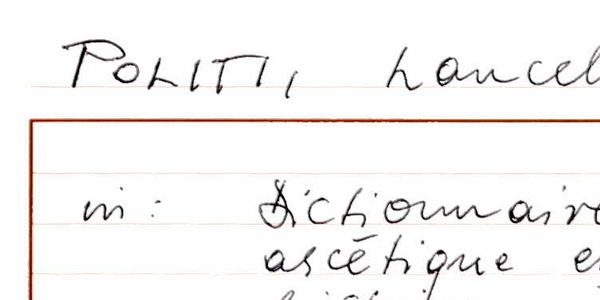 POLITI, Lancel
in: Dictionnaire
ascétique e